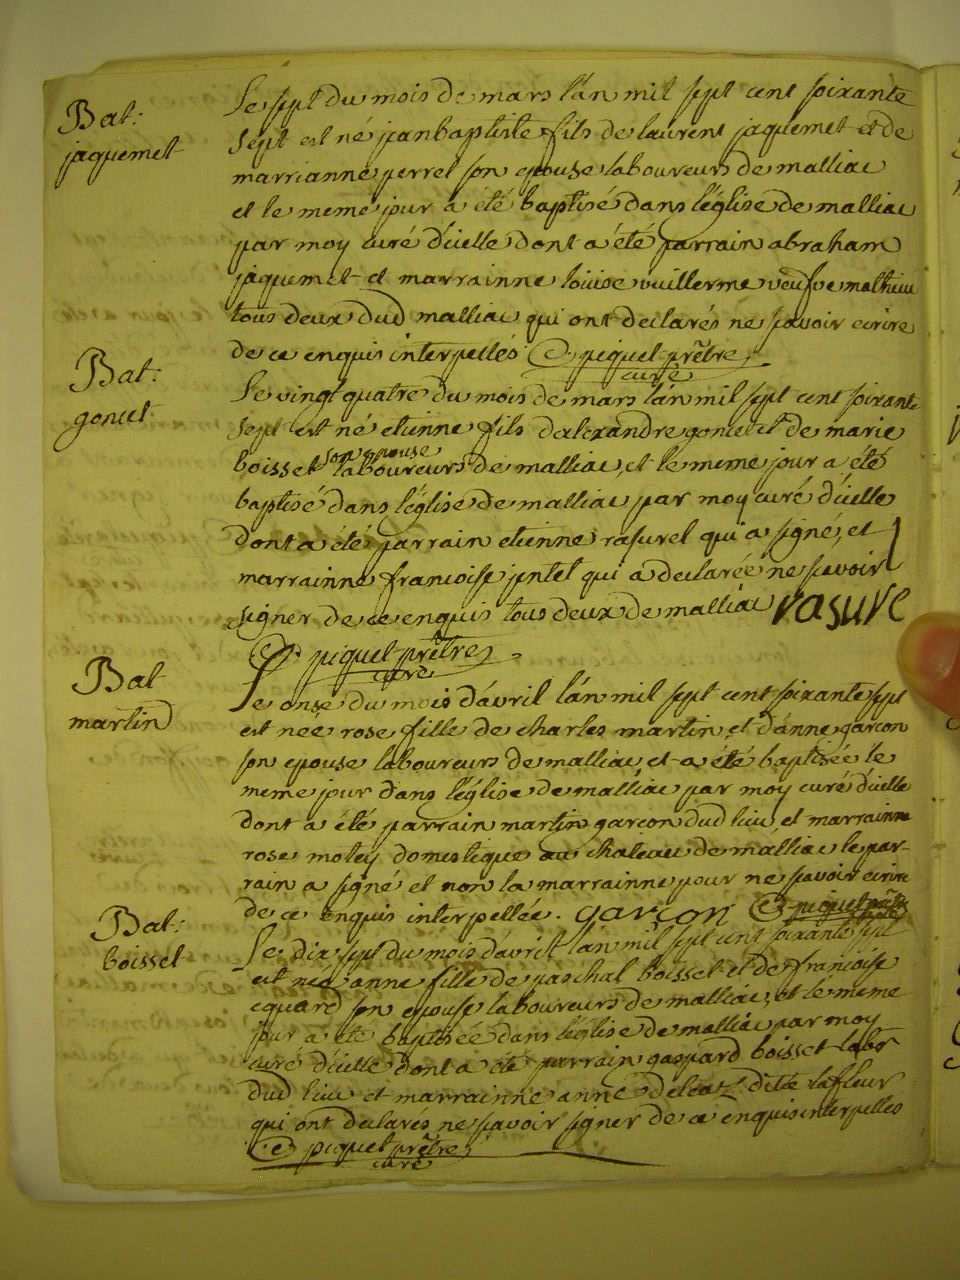 Bat:
jaquemet
Le sept du mois de mars l'an mil sept cent soixante
sept est né jeanbaptiste fils de laurent jaquemet et de
marrianne perret son epouse laboureurs de malliac
et le meme jour a été baptisé dans l'église de malliac
par moy curé d'icelle dont a été parrain abraham
jaquemet et marrainne louise vuillerme veufve mathieu
tous deux dud malliac qui ont declarés ne savoir ecrire
de ce enquis interpellés piquet prêtre
curé
Bat:
gonet
Le vingt quatre du mois de mars l'an mil sept cent soixante
sept est né etienne fils d'alexandre gonet et de marie
boisset son epouse laboureurs de malliac, et le meme jour a été
baptisé dans l'église de malliac par moy curé d'icelle
dont a été parrain etienne rasurel qui a signé, et
marrainne francoise qui a declarée ne savoir
signer de ce enquis tous deux de malliac rasure
piquet prêtre
curé
Bat
martin
Le onse du mois d'avril l'an mil sept cent soixante sept
est née rose fille de charles martin et d'anne garcon
son epouse laboureurs de malliac et a été baptisée le
meme jour dans l'église de malliac par moy curé d'icelle
dont a été parrain martin garcon dud lieu, et marrainne
rose motey domestique au chateau de malliac le par-
rain a signé et non la marrainne pour ne savoir ecrire
de ce enquis interpellée. garçon piquet prêtre
curé
Bat:
boisset
Le dix sept du mois d'avril l'an mil sept cent soixante sept
est née anne fille de paschal boisset et de francoise
equard son epouse laboureurs de malliac, et le meme
jour a été baptisée dans l'église de malliac par moy
curé d'icelle dont a été parrain gaspard boisset labor
dud lieu et marrainne anne ditte lafleur
qui ont declarés ne savoir signer de ce enquis interpelles
piquet prêtre
curé